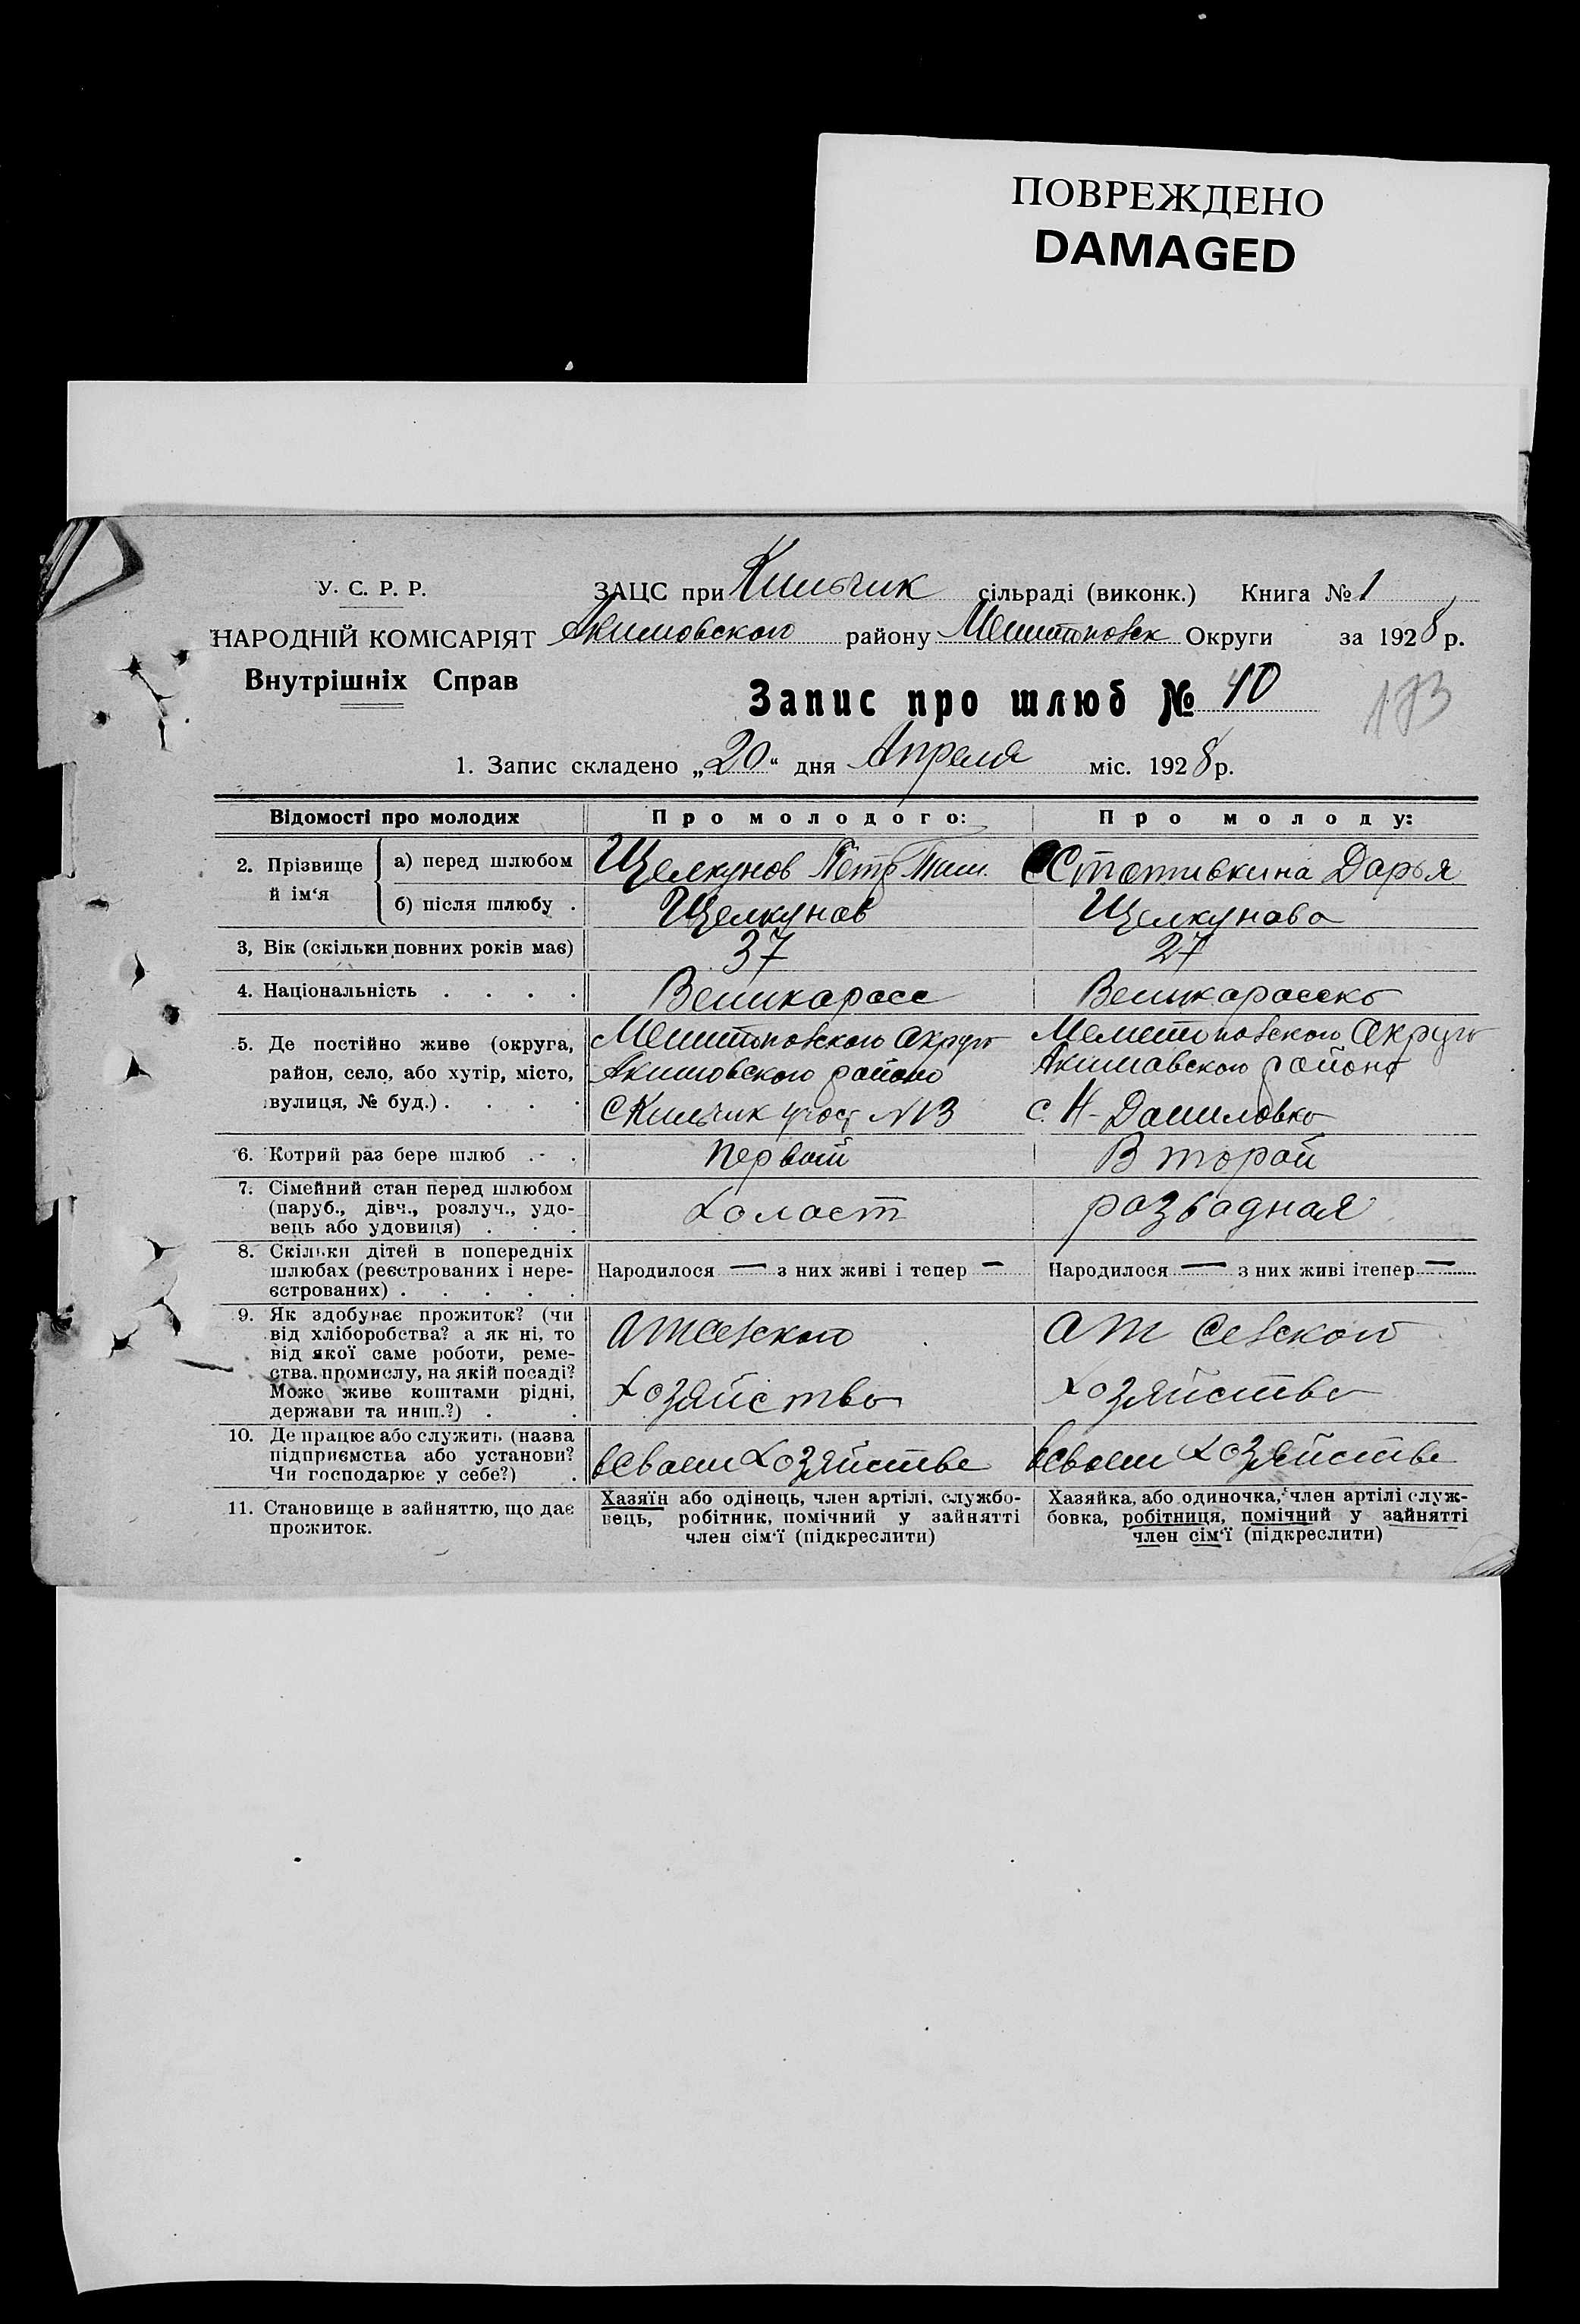 ПОВРЕЖДЕНО
DAMAGED
У. С. Р. Р. ЗАЦС при Кильчик сільраді (виконк.) Книга № 1
НАРОДНІЙ КОМІСАРІЯТ Акимовского району Мелитопольск Округи за 1928 р.
Внутрішніх Справ
Запис про шлюб № 10
183
1. Запис складено „20“ дня Апреля міс. 1928 р.
Відомості про молодих Про молодого: Про молоду:
2. Прізвище й ім‘я
а) перед шлюбом Щелкунов Петр Тим. Стативкина Дарья
б) після шлюбу . Щелкунов Щелкунова
3, Вік (скільки повних років має) 37 27
4. Національність . . . . Великаросс
5. Де постійно живе (округа,
район, село, або хутір, місто,
вулиця, № буд.) . . . .
Мелитопольского Округа
Акимовского района
С Кильчик № 13
Мелитопольского Округа
Акимавского района
с. Н-Даниловка
6. Котрий раз бере шлюб . - . Первой Второй
7. Сімейний стан перед шлюбом
(паруб., дівч., розлуч., удо-
вець або удовиця) . . .
Холост
розводная
8. Скільки дітей в попередніх
шлюбах (реєстрованих і нере-
єстрованих) . . . . .
Народилося — з них живі і тепер —
Народилося — з них живі ітепер —
9. Як здобуває прожиток? (чи
від хліборобства? а як ні, то
від якої саме роботи, реме-
ства, промислу, на якій посаді?
Може живе коштами рідні,
держави та инш.?) . .
От сельского
Хозяйства
От сельского
Хозяйства
10. Де працює або служить (назва
підприємства або установи?
Чи господарює у себе?) .
всваем Хозяйстве
всваем Хозяйстве
11. Становище в зайняттю, що дає
прожиток.
Хазяїн або одінець, член артілі, службо-
вець, робітник, помічний у зайнятті
член сім‘ї (підкреслити)
Хазяйка, або одиночка, член артілі служ-
бовка, робітниця, помічний у зайнятті
член сім‘ї (підкреслити)